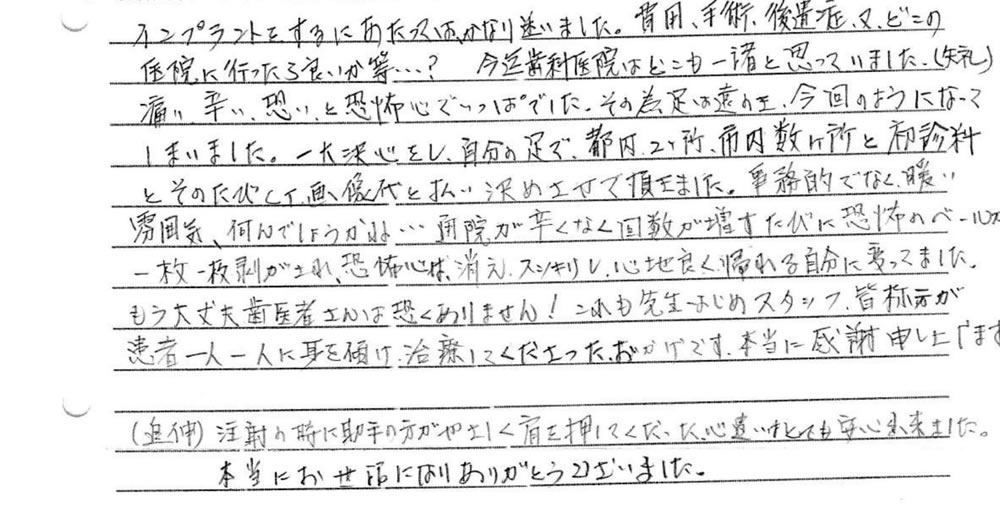 インプラントをするにあたってはかなり迷いました。費用、手術、後遺症、又、どこの
医院に行ったら良いか等…？ 今迄歯科医院はどこも一緒と思っていました。(失礼)
痛い、辛い、恐い、と恐怖心でいっぱでした。その為足は遠のき、今回のようになって
しまいました。一大決心をし、自分の足で、都内、2ヶ所、市内数ヶ所と初診料
とそのたびCT画像代と払い決めさせて頂きました。事務的でなく、暖い
雰囲気、何んでしょうかね…通院が辛くなく回数が増すたびに恐怖のベールが
一枚一枚剥がされ、恐怖心は、消え、スッキリし、心地良く帰れる自分に変ってました。
もう大丈夫歯医者さんは恐くありません！これも先生はじめスタッフ、皆様方が
患者一人一人に耳を傾け、治療してくださった、おかげです。本当に感謝申し上げます
(追伸) 注射の時に助手の方がやさしく肩を押してくださった、心遣いはとても安心出来ました。
本当にお世話になりありがとうございました。